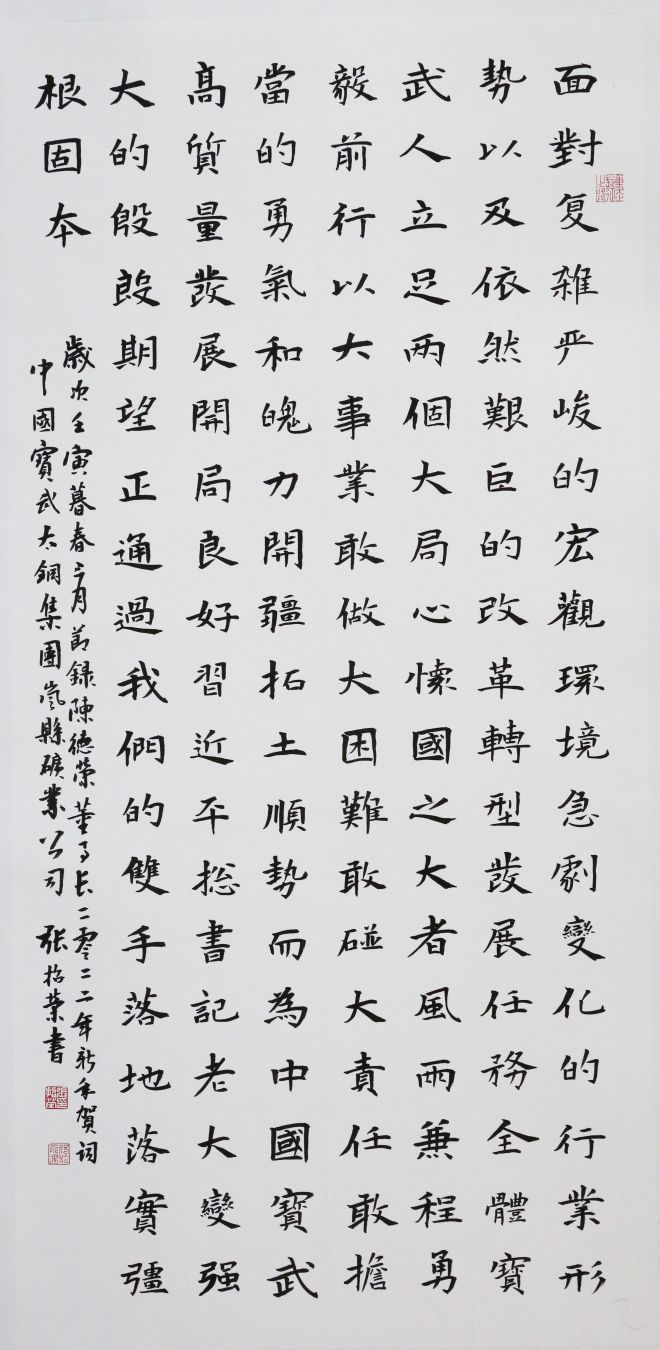 面對复雜严峻的宏觀環境急劇變化的行業形
勢以及依然艱巨的改革轉型發展任務全體寶
武人立足两個大局心懷國之大者風雨兼程勇
毅前行以大事業敢做大困難敢碰大責任敢擔
當的勇氣和魄力開疆拓土順勢而為中國寶武
高質量發展開局良好習近平総書記老大變强
大的殷殷期望正通過我們的雙手落地落實彊
根固本
歲次壬寅暮春三月節録陳德榮董事長二零二二年新年賀词
中國寶武太钢集團嵐縣礦業公司 张拾荣書